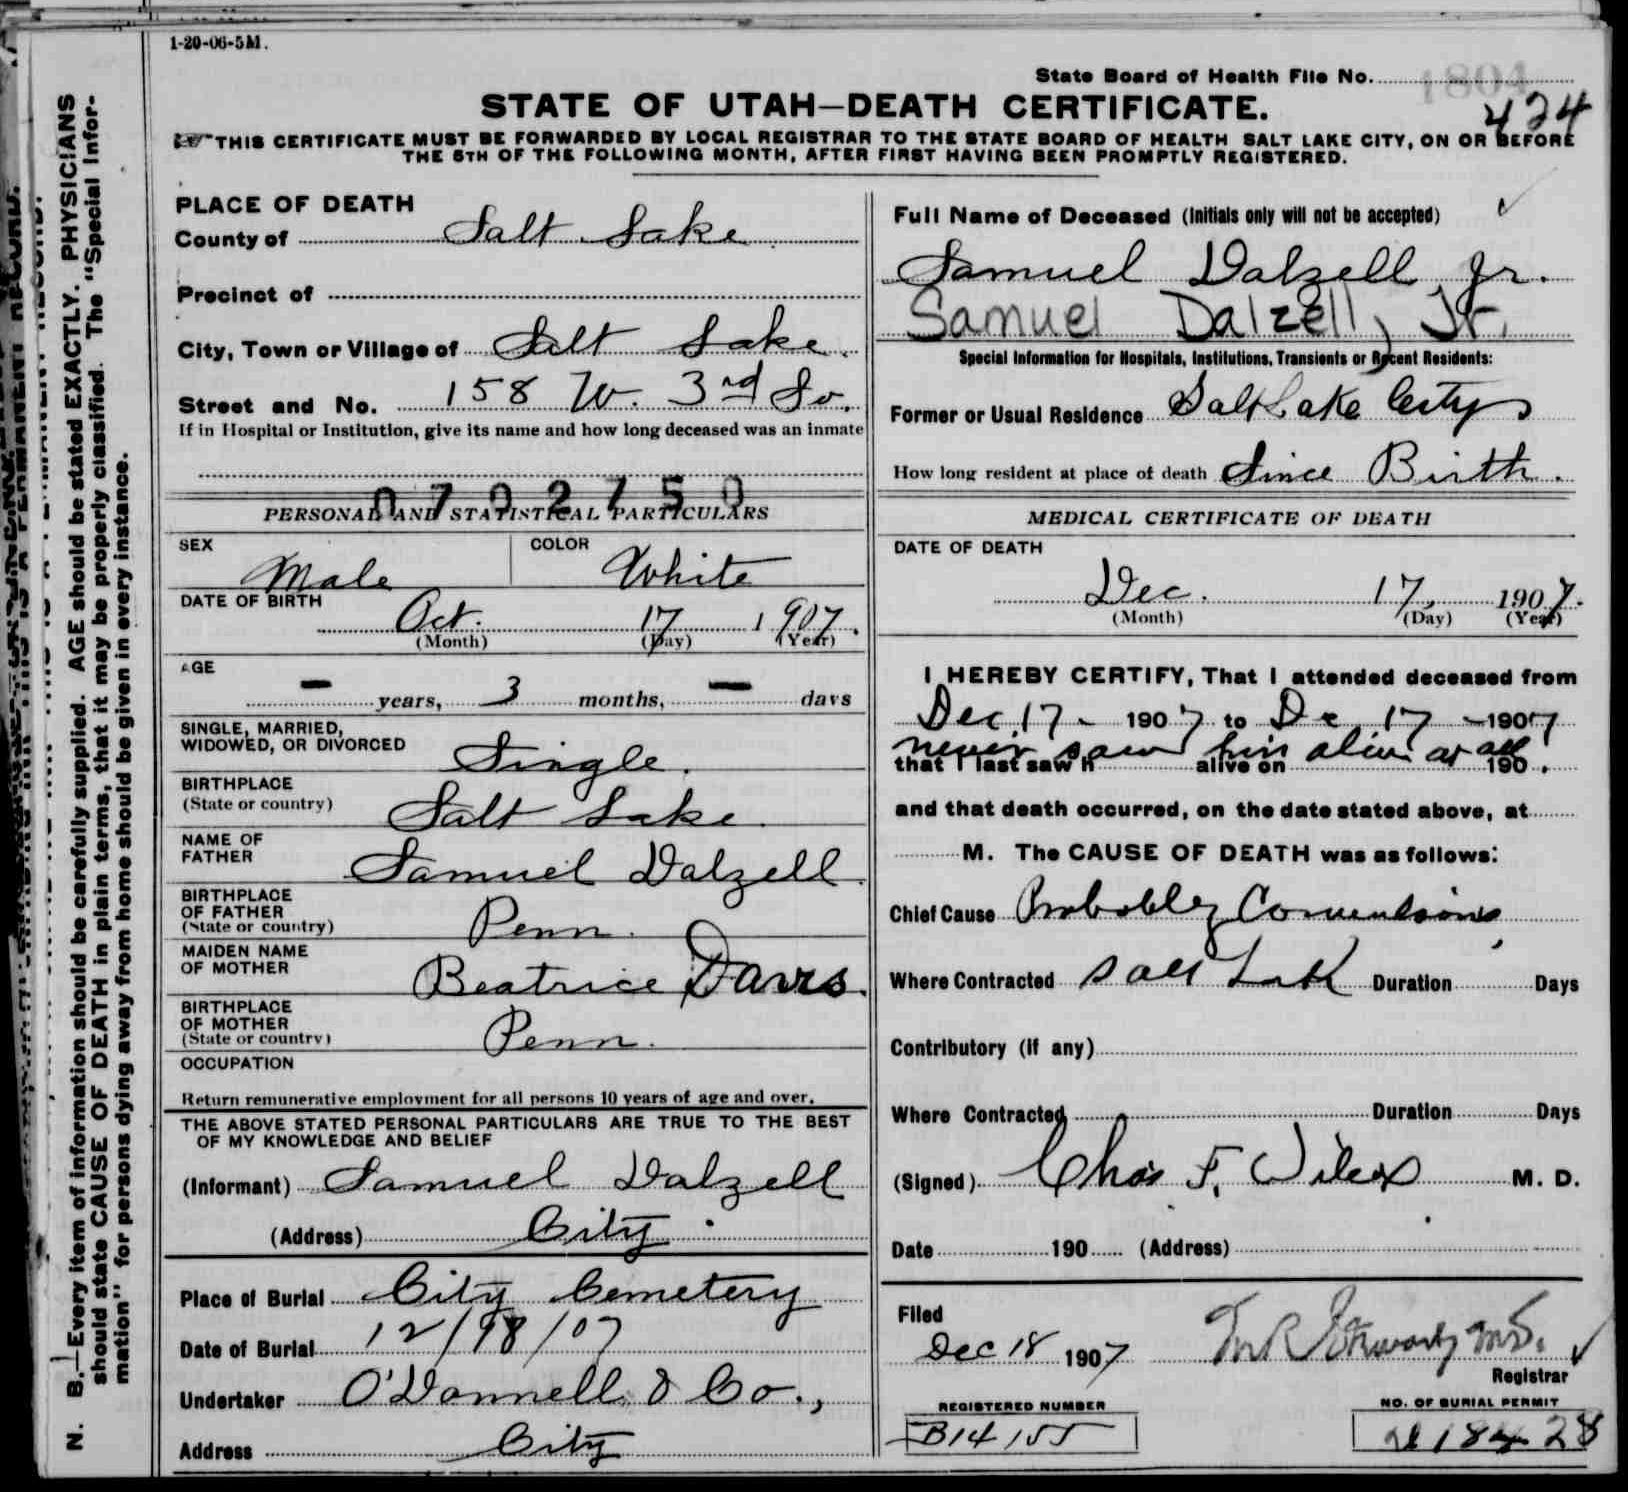 1-20-06-5M.
State Board of Health File No. 1804
424
STATE OF UTAH—DEATH CERTIFICATE.
THIS CERTIFICATE MUST BE FORWARDED BY LOCAL REGISTRAR TO THE STATE BOARD OF HEALTH SALT LAKE CITY, ON OR BEFORE
THE 5TH OF THE FOLLOWING MONTH, AFTER FIRST HAVING BEEN PROMPTLY REGISTERED.
N. B.—Every item of information should be carefully supplied. AGE should be stated EXACTLY. PHYSICIANS
should state CAUSE OF DEATH in plain terms, that it may be properly classified. The "Special Infor-
mation" for persons dying away from home should be given in every instance.
PLACE OF DEATH
County of Salt Lake
Precinct of
City, Town or Village of Salt Lake.
Street and No. 158 W. 3rd So.
If in Hospital or Institution, give its name and how long deceased was an inmate
0702750
PERSONAL AND STATISTICAL PARTICULARS
SEX Male COLOR White
DATE OF BIRTH
Oct. 17 1907.
(Month) (Day) (Year)
AGE
— years, 3 months, — days
SINGLE, MARRIED,
WIDOWED, OR DIVORCED Single.
BIRTHPLACE
(State or country) Salt Lake.
NAME OF
FATHER Samuel Dalzell.
BIRTHPLACE
OF FATHER
(State or country) Penn.
MAIDEN NAME
OF MOTHER Beatrice Davis.
BIRTHPLACE
OF MOTHER
(State or country) Penn.
OCCUPATION
Return remunerative employment for all persons 10 years of age and over.
THE ABOVE STATED PERSONAL PARTICULARS ARE TRUE TO THE BEST
OF MY KNOWLEDGE AND BELIEF
(Informant) Samuel Dalzell
(Address) City.
Place of Burial City Cemetery
Date of Burial 12/18/07
Undertaker O'Donnell & Co.,
Address City
Full Name of Deceased (Initials only will not be accepted)
Samuel Dalzell Jr.
Samuel Dalzell, Jr.
Special Information for Hospitals, Institutions, Transients or Recent Residents:
Former or Usual Residence Salt Lake City
How long resident at place of death Since Birth.
MEDICAL CERTIFICATE OF DEATH
DATE OF DEATH
Dec. 17, 1907.
(Month) (Day) (Year)
I HEREBY CERTIFY, That I attended deceased from
Dec. 17 - 1907 to Dec 17 - 1907
never saw him alive at all
that I last saw h alive on 190 .
and that death occurred, on the date stated above, at
M. The CAUSE OF DEATH was as follows:
Chief Cause Probably Convulsions
Where Contracted Salt Lak Duration Days
Contributory (if any)
Where Contracted Duration Days
(Signed) Chas F. Wilcox M. D.
Date 190 (Address)
Filed
Dec 18 1907 M.D.
Registrar
REGISTERED NUMBER
B14155
NO. OF BURIAL PERMIT